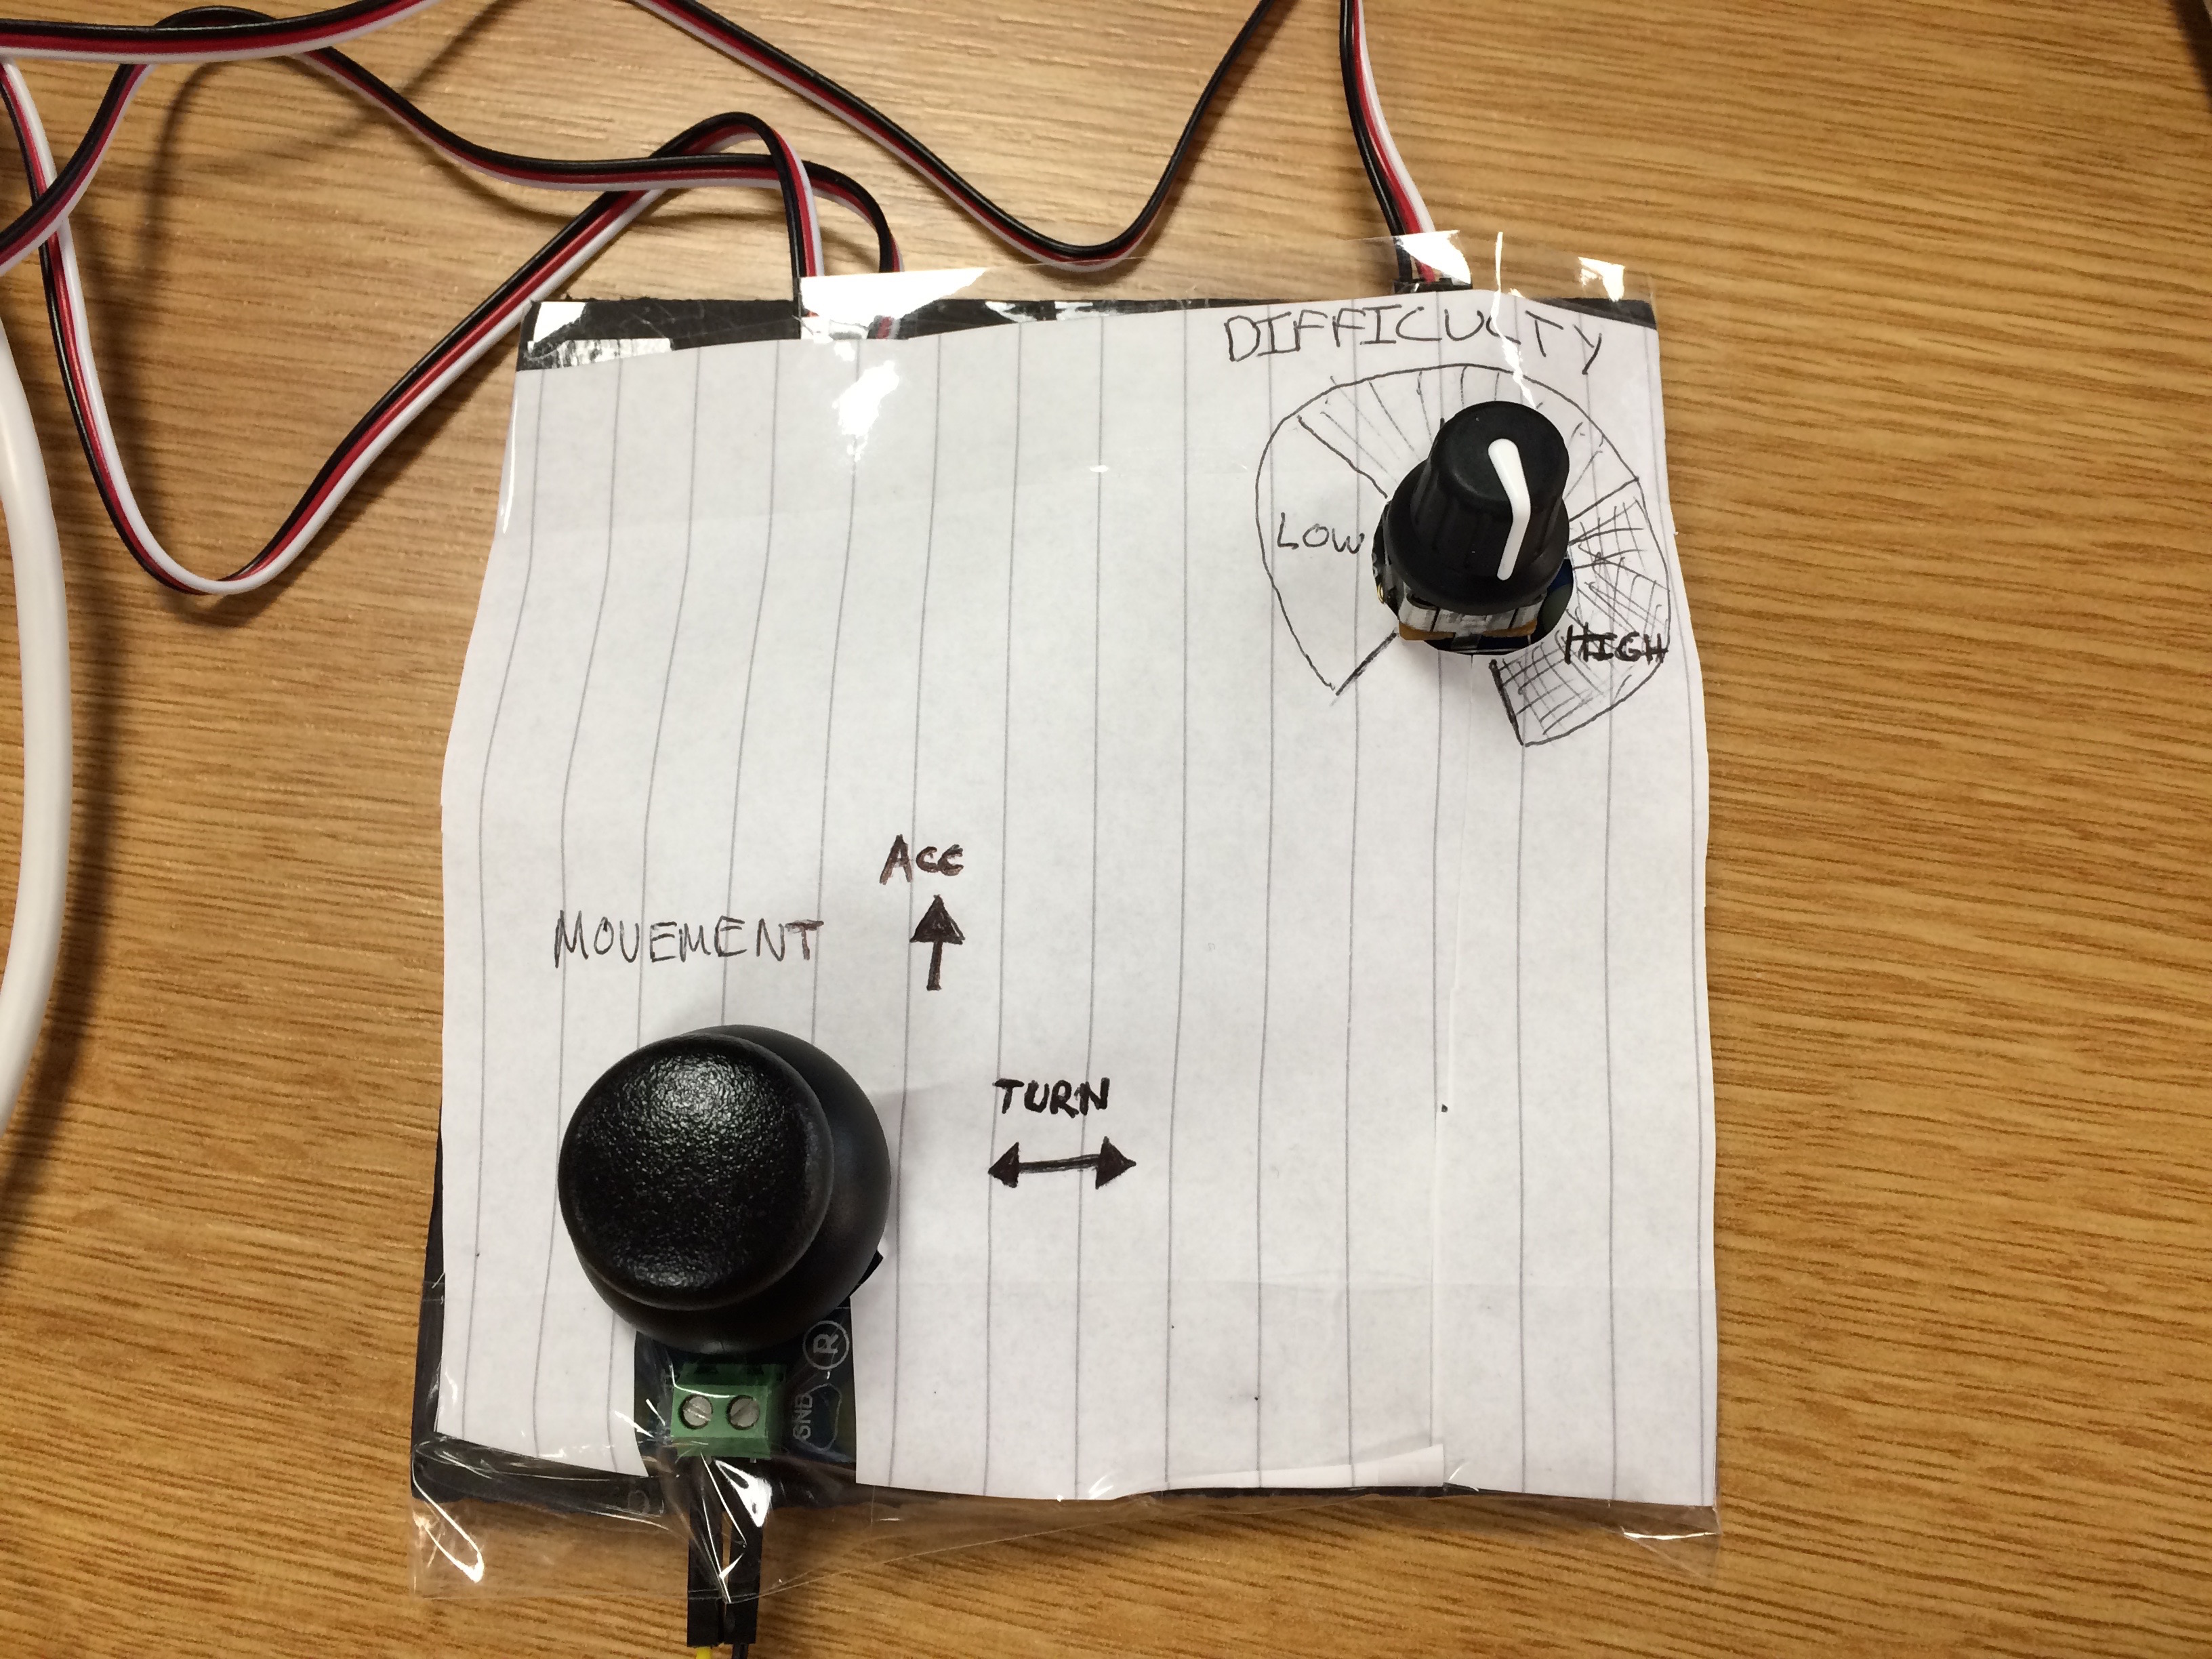 DIFFICULTY
LOW
HIGH
ACC
MOVEMENT
TURN
R
GND